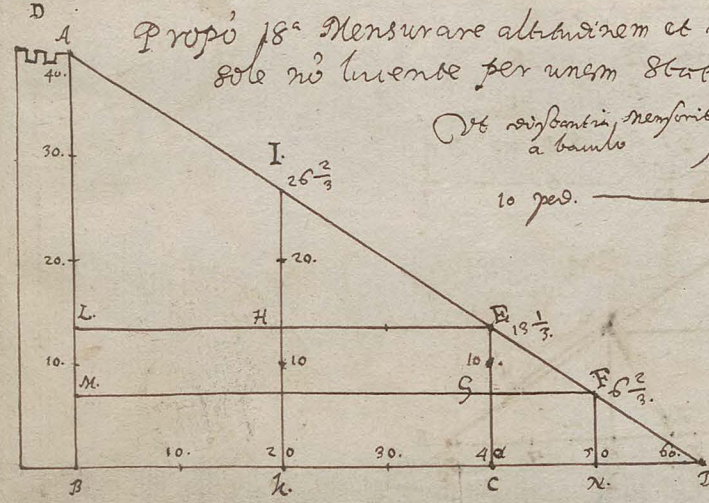 D
A
Propõ 18ª Mensurare altitudinem et
sole nõ lucente per unam Stat
Ut distantia, Mensurit
a baculo
10 ped.
40.
30.
I.
26 2/3
20. 20.
L. H E. 13 1/3.
10. 10 10.
M. G F 6 2/3.
10. 20 30. 40 50 60.
B K. C N. D